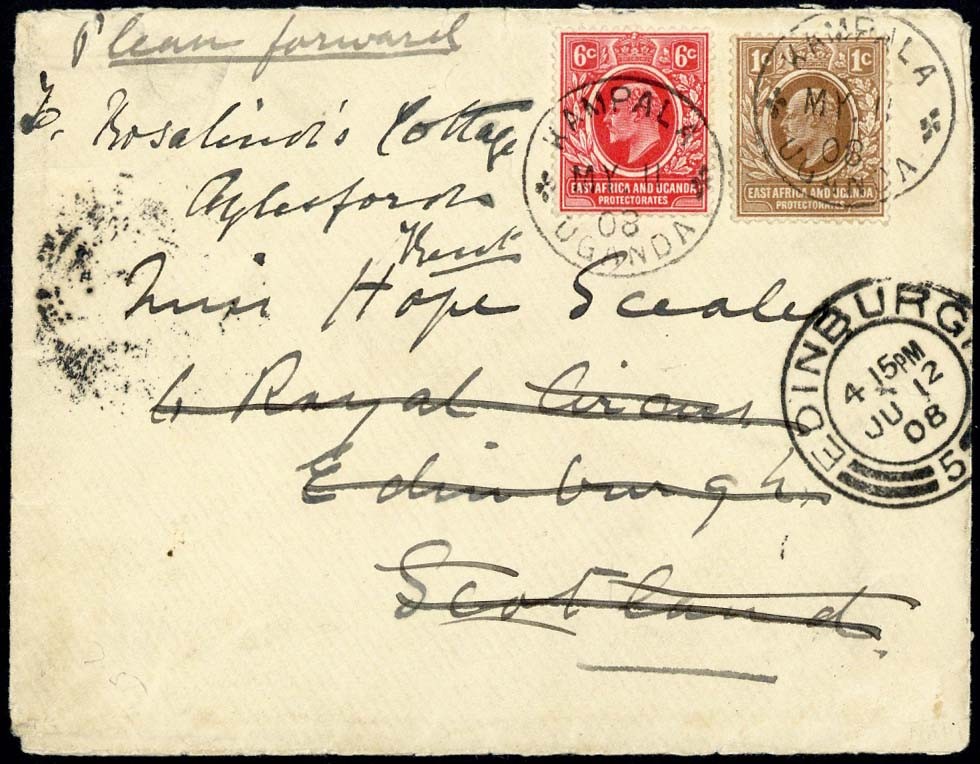 Please forward
Rosalind's Cottage
Aylesford
Kent
Miss Hope Sceales
6 Royal Circus
Edinburgh
Scotland
6c 6c
EAST AFRICA AND UGANDA
PROTECTORATES
1c 1c
EAST AFRICA AND UGANDA
PROTECTORATES
KAMPALA
MY 11
08
UGANDA
KAMPALA
MY 11
08
UGANDA
EDINBURGH
4 15PM
JU 12
08
5